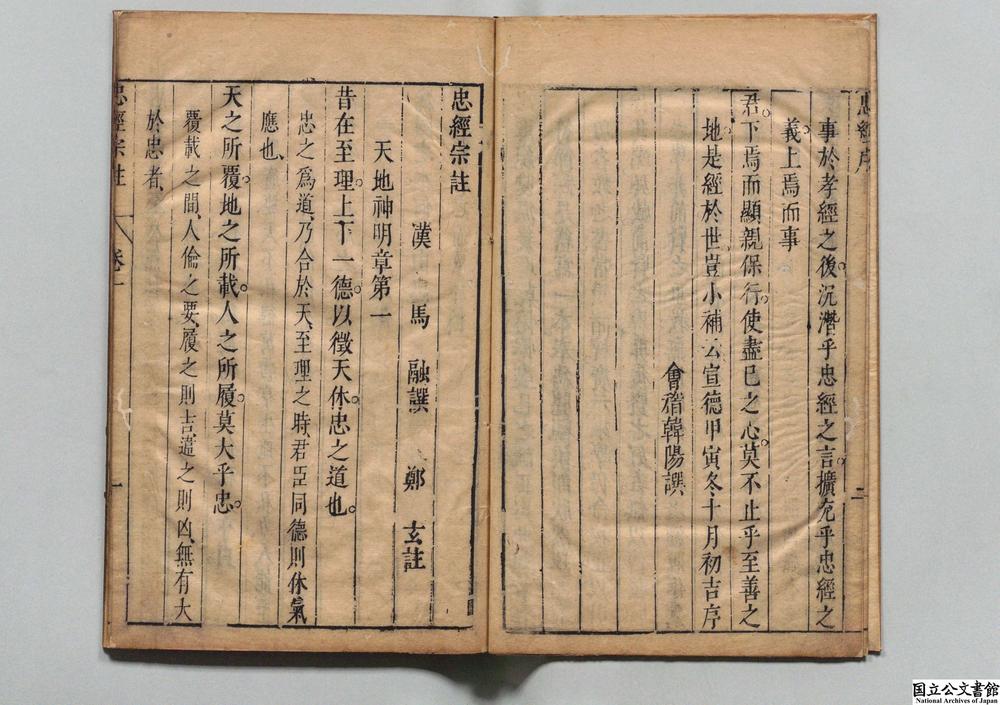 事於孝經之後。沉潛乎忠經之言。擴充乎忠經之
義。上焉而事
君。下焉而顯親保行。使盡已之心。莫不止乎至善之
地。是經於世豈小補云宣德甲寅冬十月初吉序
會稽韓陽譔
忠經序
二
忠經宗註
漢 馬 融譔 鄭 玄註
天地神明章第一
昔在至理。上下一德。以徵天休。忠之道也。
忠之爲道、乃合於天、至理之時、君臣同德、則休氣
應也、
天之所覆。地之所載。人之所履。莫大乎忠。
覆載之間、人倫之要、履之則吉、違之則凶、無有大
於忠者、
忠經宗註
卷一
一
国立公文書館
National Archives of Japan